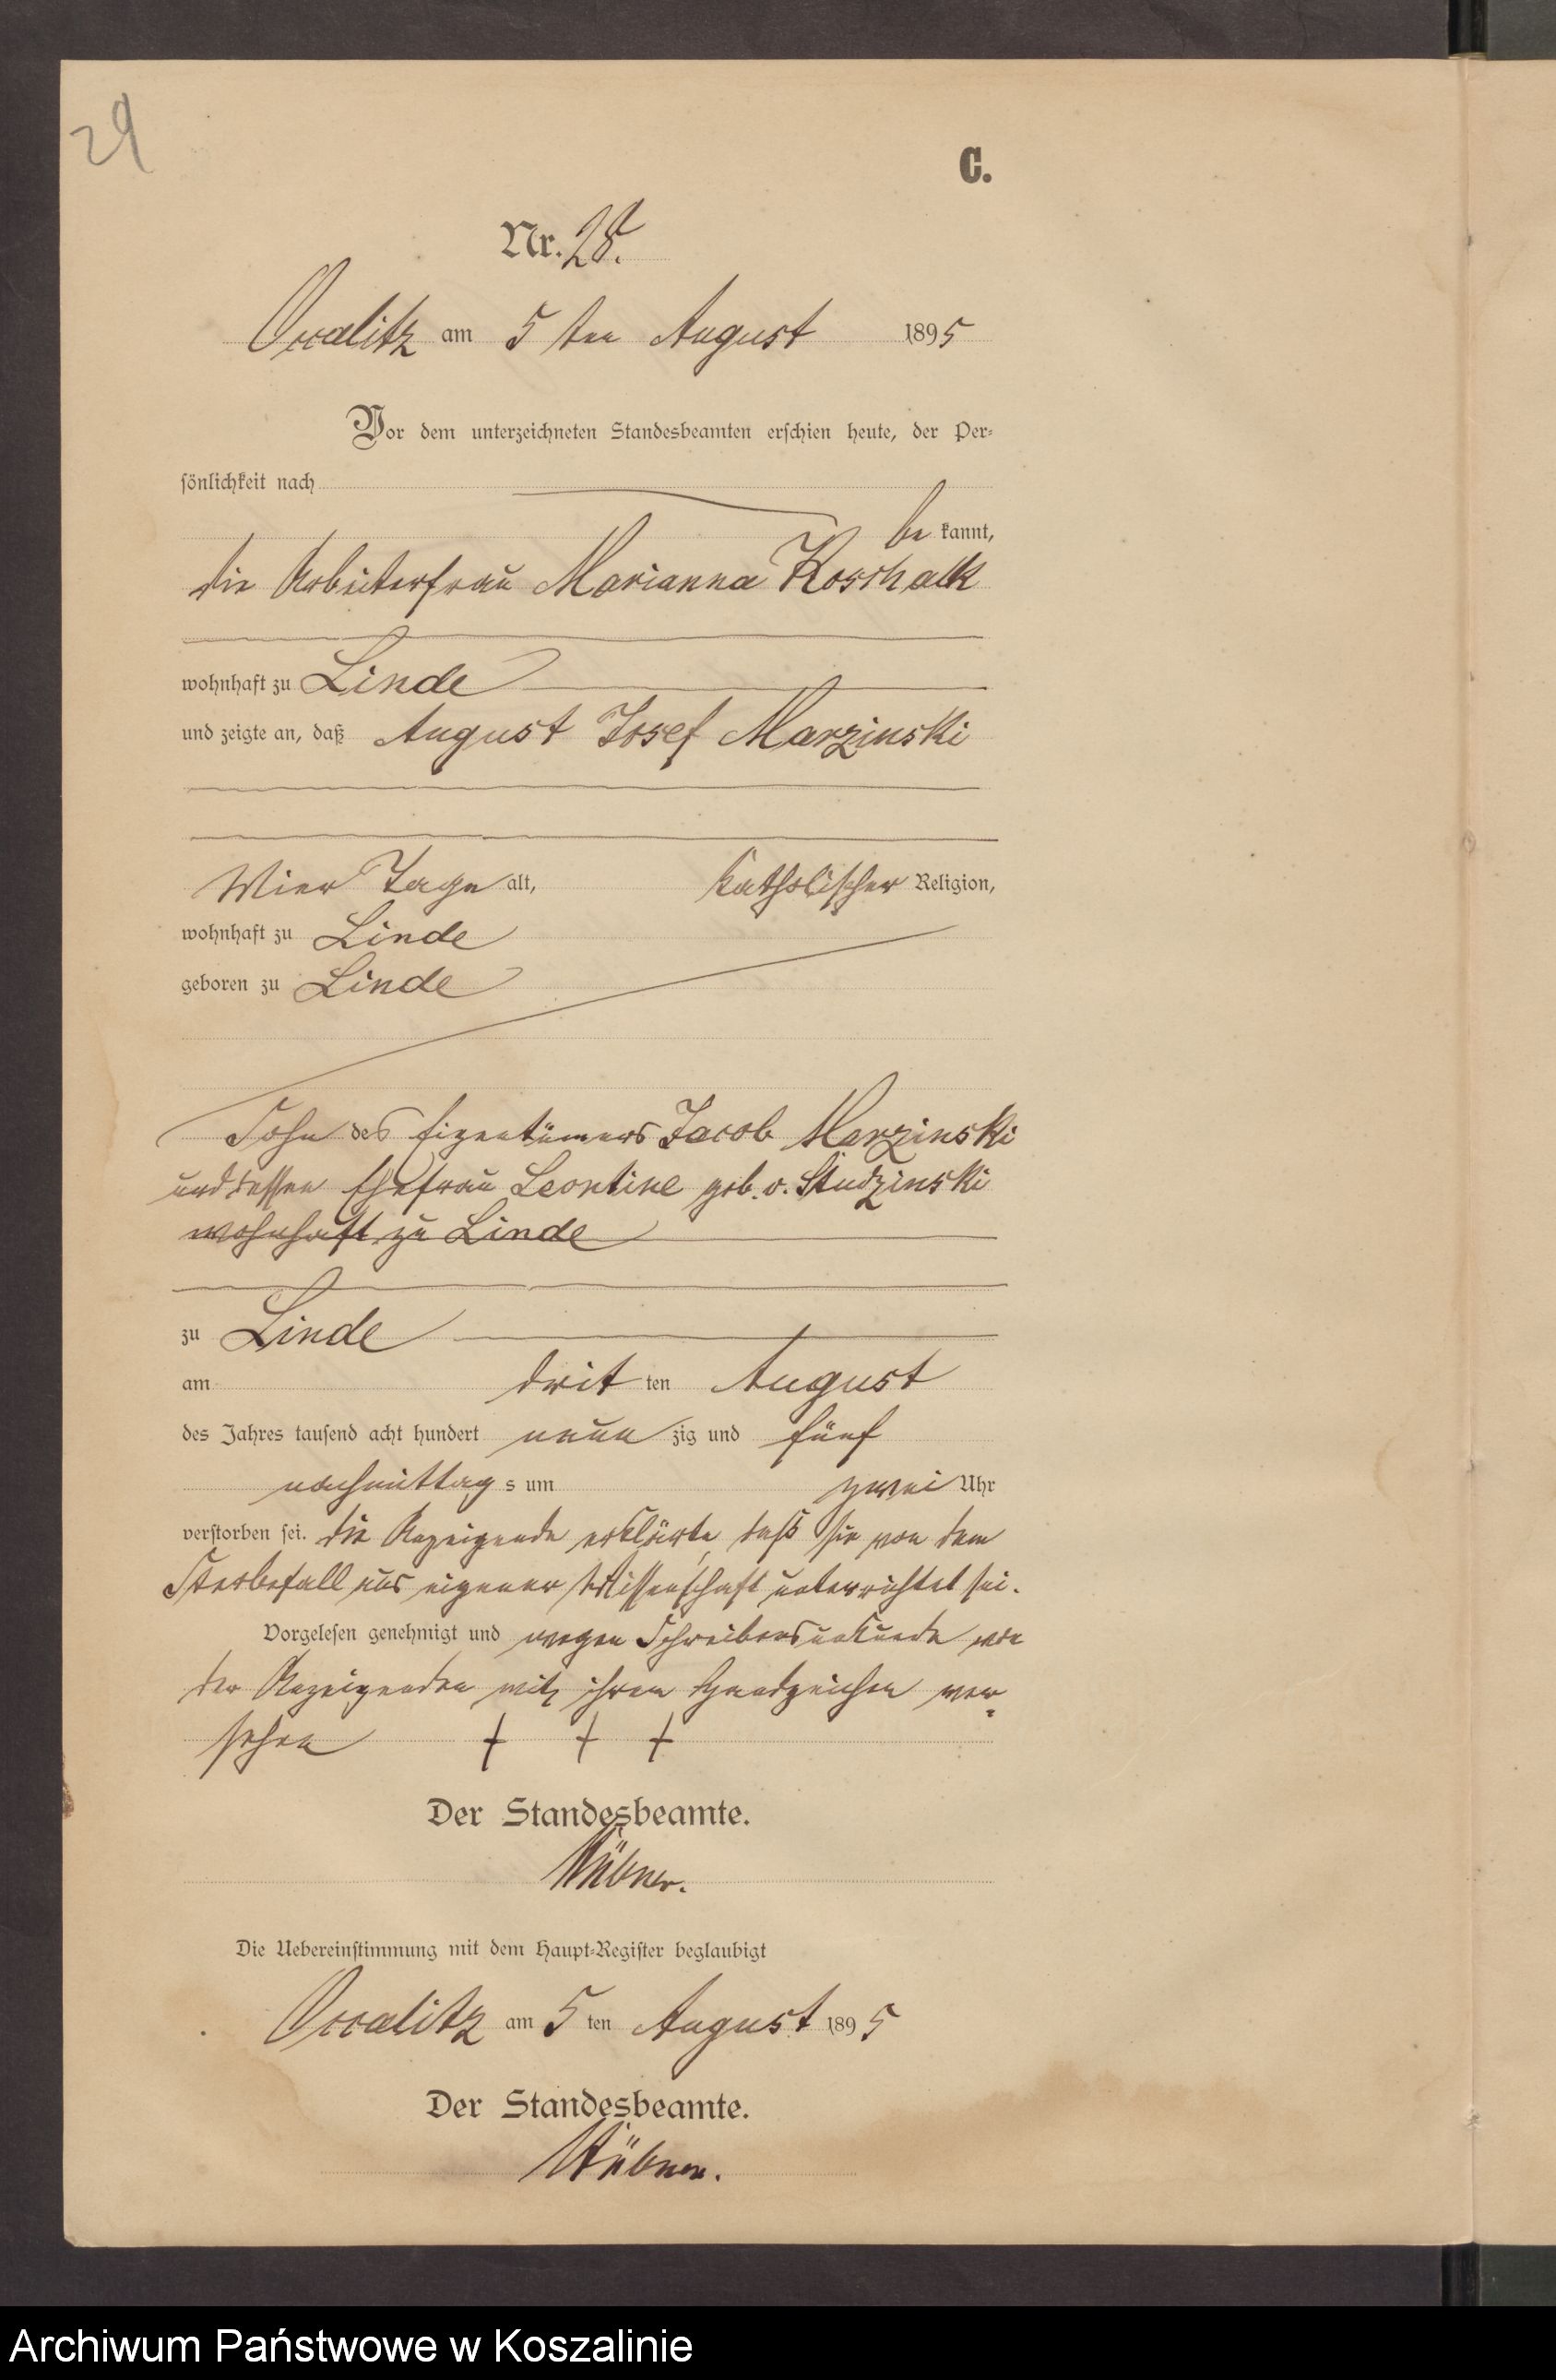 29
C.
Nr. 28.
Occalitz am 5 ten August 1895
Vor dem unterzeichneten Standesbeamten erschien heute, der Per-
sönlichkeit nach
be kannt,
die Arbeiterfrau Marianna Koschalk
wohnhaft zu Linde
und zeigte an, daß August Josef Marzinski
Vier Tage alt, katholischer Religion,
wohnhaft zu Linde
geboren zu Linde
Sohn des Eigentümers Jacob Marzinski
und dessen Ehefrau Leontine geb. v. Studzinski
wohnhaft zu Linde
zu Linde
am dritten August
des Jahres tausend acht hundert neun zig und fünf
nachmittag s um zwei Uhr
verstorben sei. Die Anzeigende erklärte, daß sie von dem
Sterbefall aus eigener Wissenschaft unterrichtet sei.
Vorgelesen genehmigt und wegen Schreibensunkunde von
der Anzeigenden mit ihrem Handzeichen ver-
sehen + + +
Der Standesbeamte.
Die Uebereinstimmung mit dem Haupt-Register beglaubigt
Occalitz am 5 ten August 1895
Der Standesbeamte.
Archiwum Państwowe w Koszalinie